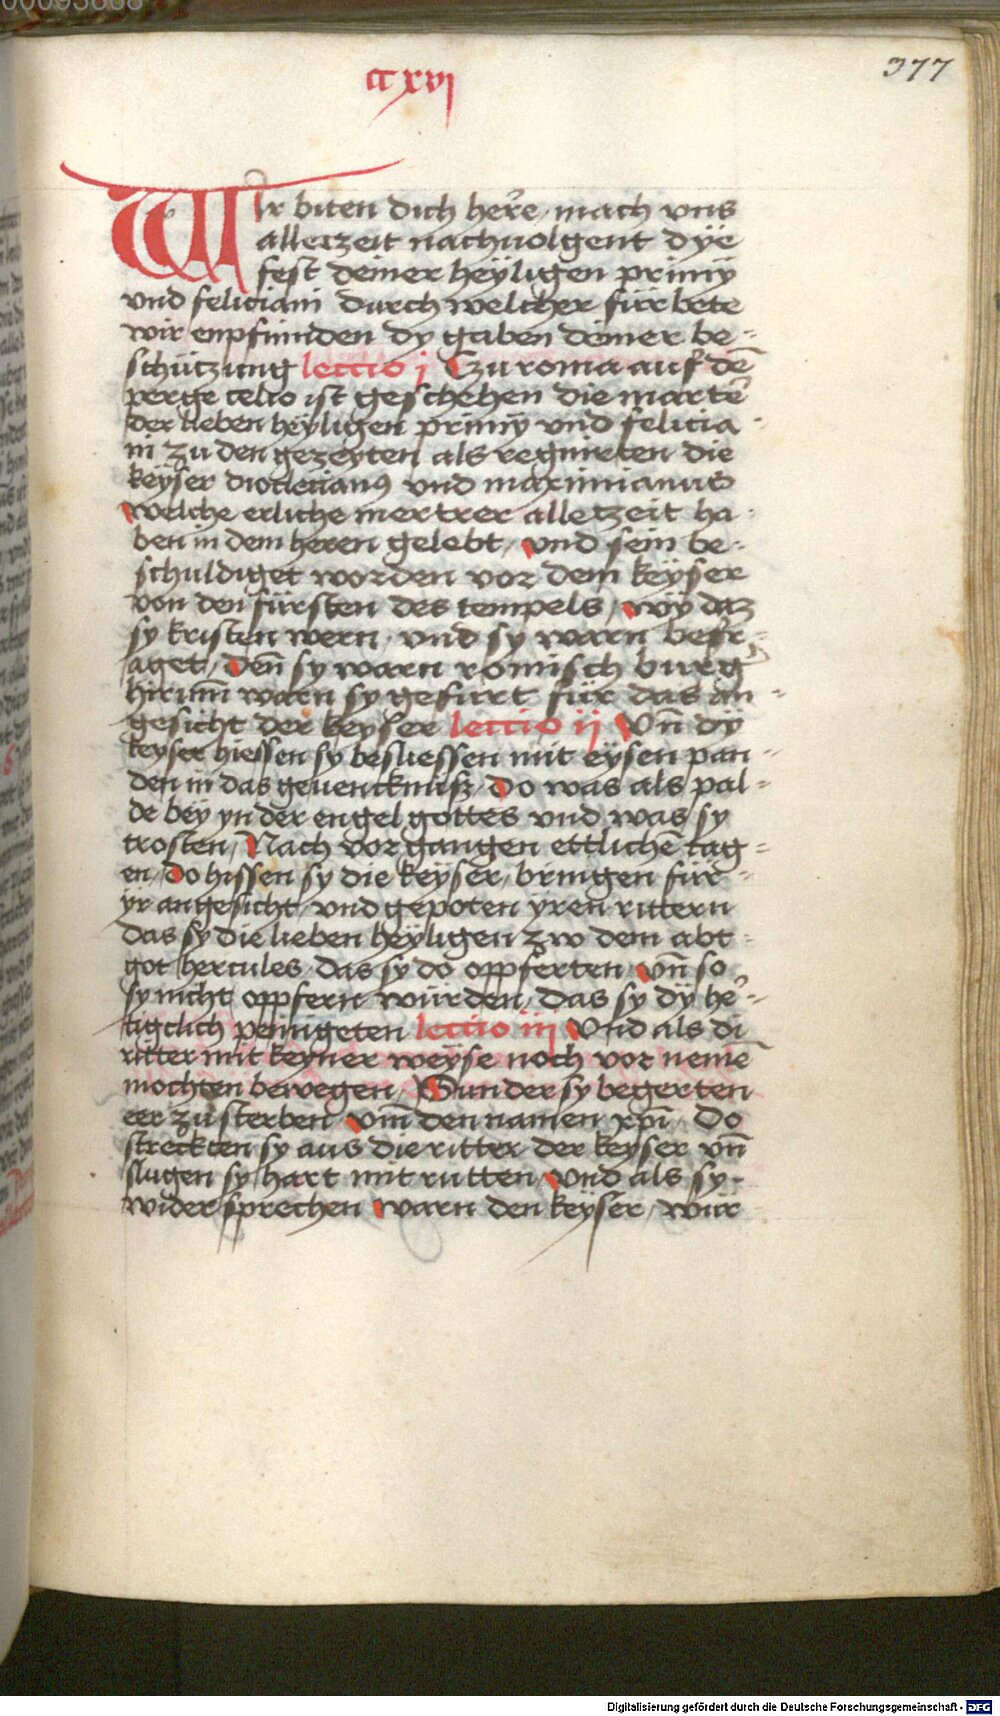 00093668
cc xvj
377
Wir biten dich here, mach vns
allerzeit nachuolgent dÿe
fest deiner heÿligen primÿ
vnd feliciani durch welcher für bete
wir enpfinnden dy gaben deiner be-
schützung lectio j Czu roma auf dē
perge celio ist geschehen die marter
der lieben heÿligen primÿ vnd felicia
ni zu den gezeyten als regnirten die
keÿser dioclecianꝰ vnd maximianus
welche erliche mertrer allezeit ha
ben in dem heren gelebt, vnd sein be-
schuldiget worden vor dem keÿser
von den fürsten des tempels, wÿ daz
sy kristen wern, vnd sy warn befr-
aget, den̄ sy warn romisch burger
hirum̄ warn sy gefürt für das an-
gesicht der keyser lectio ij Vn̄ dÿ
keyser hiessen sy besliessen mit eÿsen pan-
den in das gevencknusz, do was als pal-
de beÿ yn der engel gottes vnd was sy
trosten, Nach vor gangen ettlichē tag-
en, do hissen sy die keÿser, bringen für
ÿr angesicht, vnd gepoten ÿren rittern
das sy die lieben heÿligen zw dem abt-
got hercules, das sy do oppferten, vn̄ so
sy nicht oppfern würden, das sy dÿ her-
tigclich peinigeten lectio iij Vnd als di
ritter mit keyner weÿse noch vor nemē
mochten bewegen, Sunder sy begerten
eer zu sterben, vm̄ den namen xp̄i, Do
streckten sy aus die ritter der keyser vn̄
slugen sy hart mit rutten, vnd als sy
wider sprechen warn den keÿser, wur
Digitalisierung gefördert durch die Deutsche Forschungsgemeinschaft - DFG